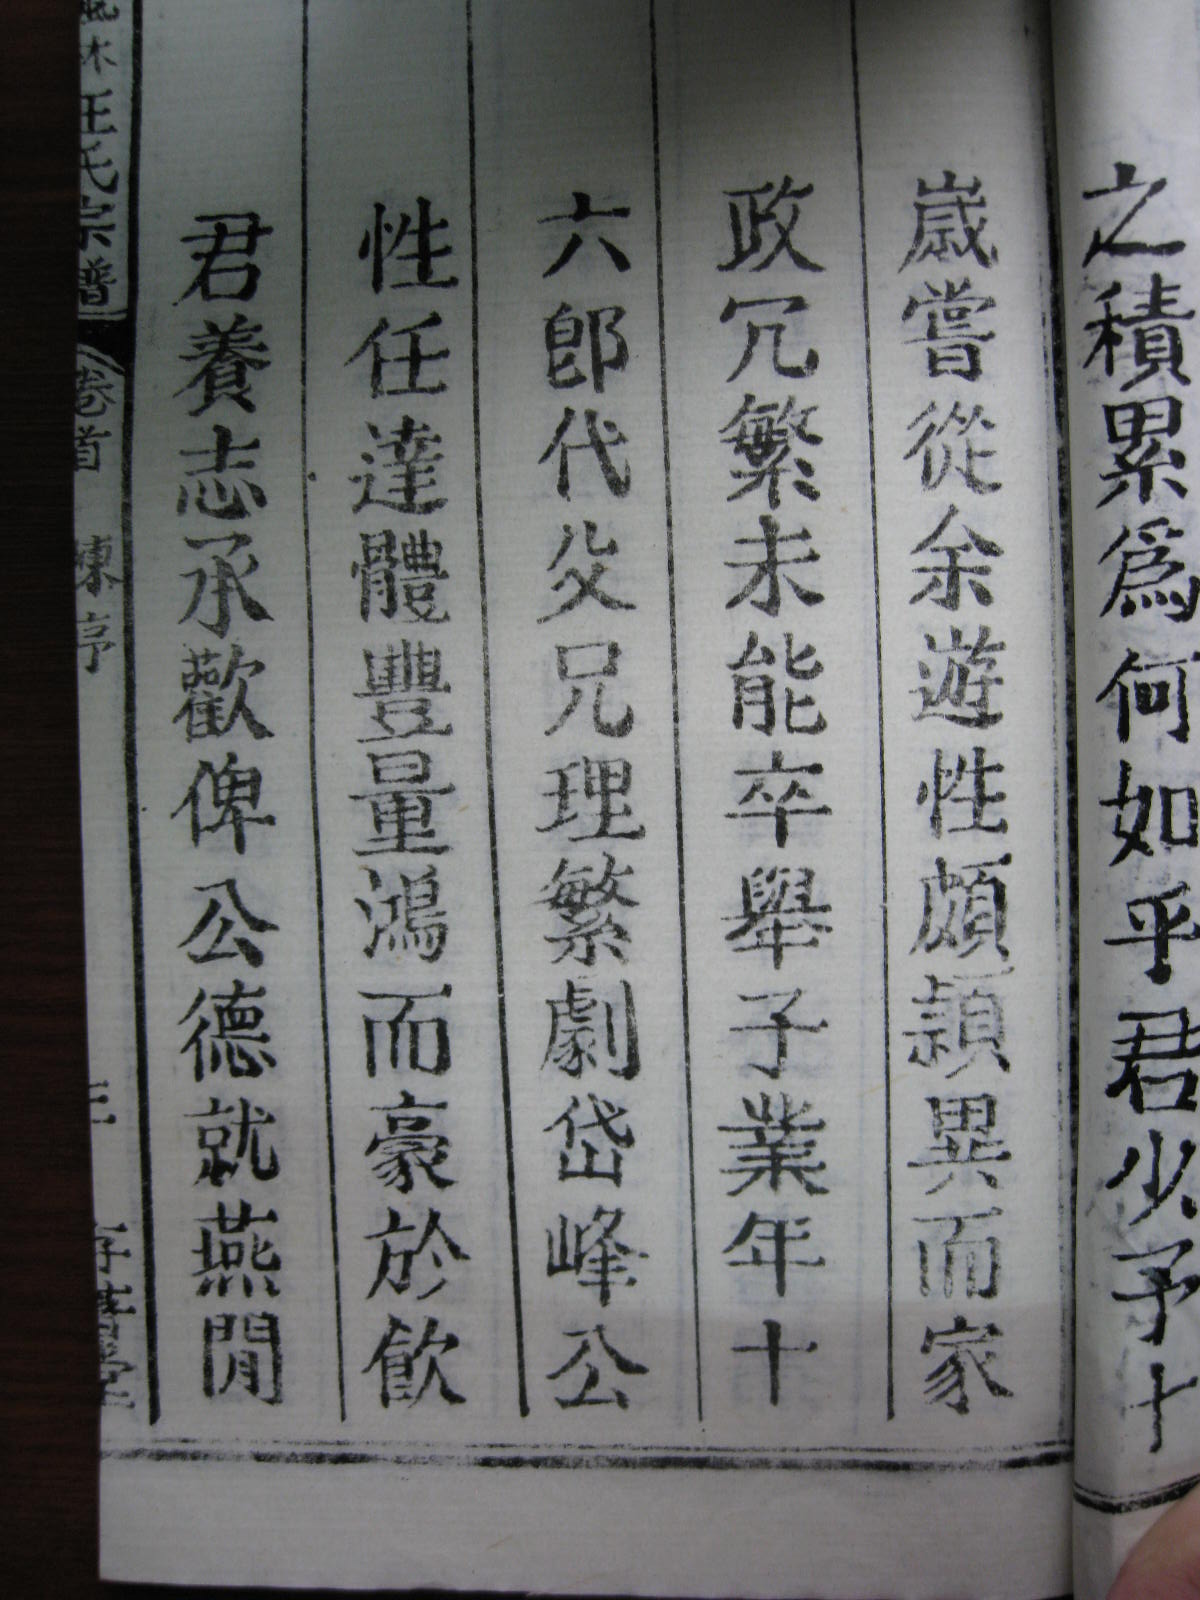 之積累爲何如乎君少予十
歲嘗從余遊性頗穎異而家
政冗繁未能卒舉子業年十
六卽代父兄理繁劇岱峰公
性任達體豐量鴻而豪於飲
君養志承歡俾公德就燕閒
林王氏宗譜 卷首 三